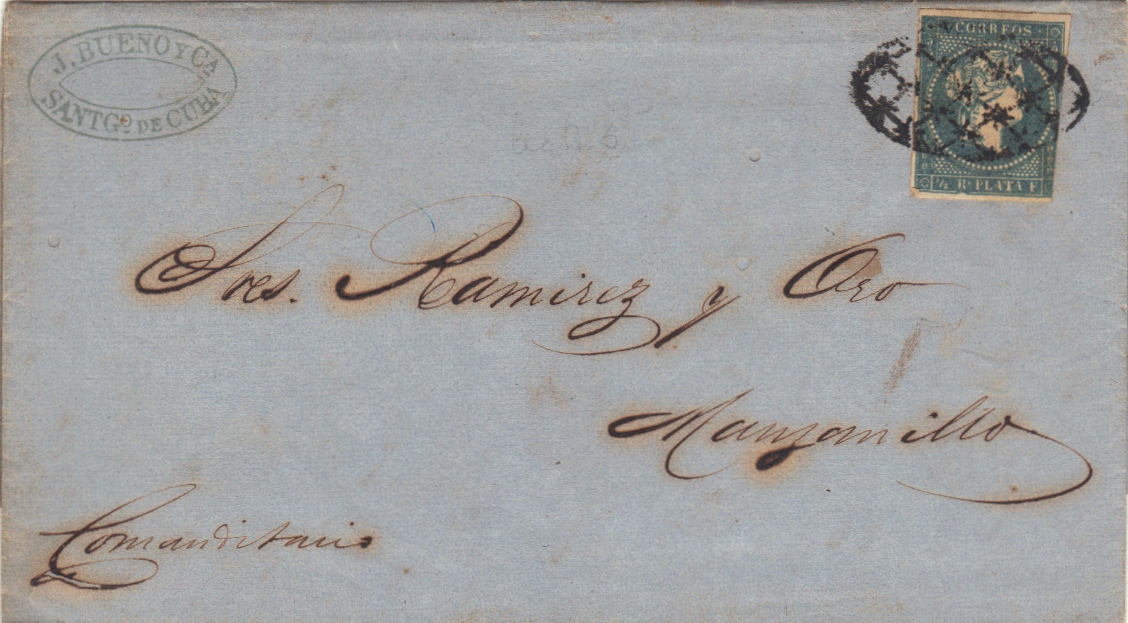 J. BUENO Y Ca
SANTGo. DE CUBA
CORREOS
½ Rl. PLATA F
Sres. Ramirez y Oro
Manzanillo
Comanditario